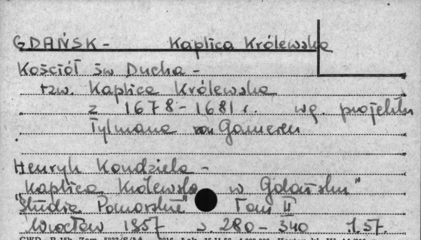 GDAŃSK - Kaplica Królewska
Kościół św Ducha -
tzw. Kaplica Królewska
z 1678-1681 r. wg. projektu
Tylmana van Gameren
Henryk Kondziela -
"Kaplica Królewska w Gdańsku"
"Studia Pomorskie" Tom II
Wrocław 1957 s. 280-340 1.57.